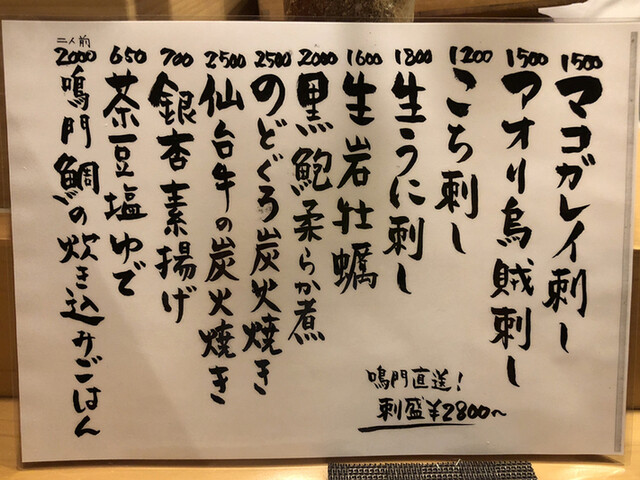 1500 マコガレイ刺し
1500 アオリ烏賊刺し
1200 こち刺し
1800 生うに刺し
1600 生岩牡蠣
2000 黒鮑柔らか煮
2500 のどぐろ炭火焼き
2500 仙台牛の炭火焼き
700 銀杏素揚げ
650 茶豆塩ゆで
二人前
2000 鳴門鯛の炊き込みごはん
鳴門直送!
刺盛¥2800〜